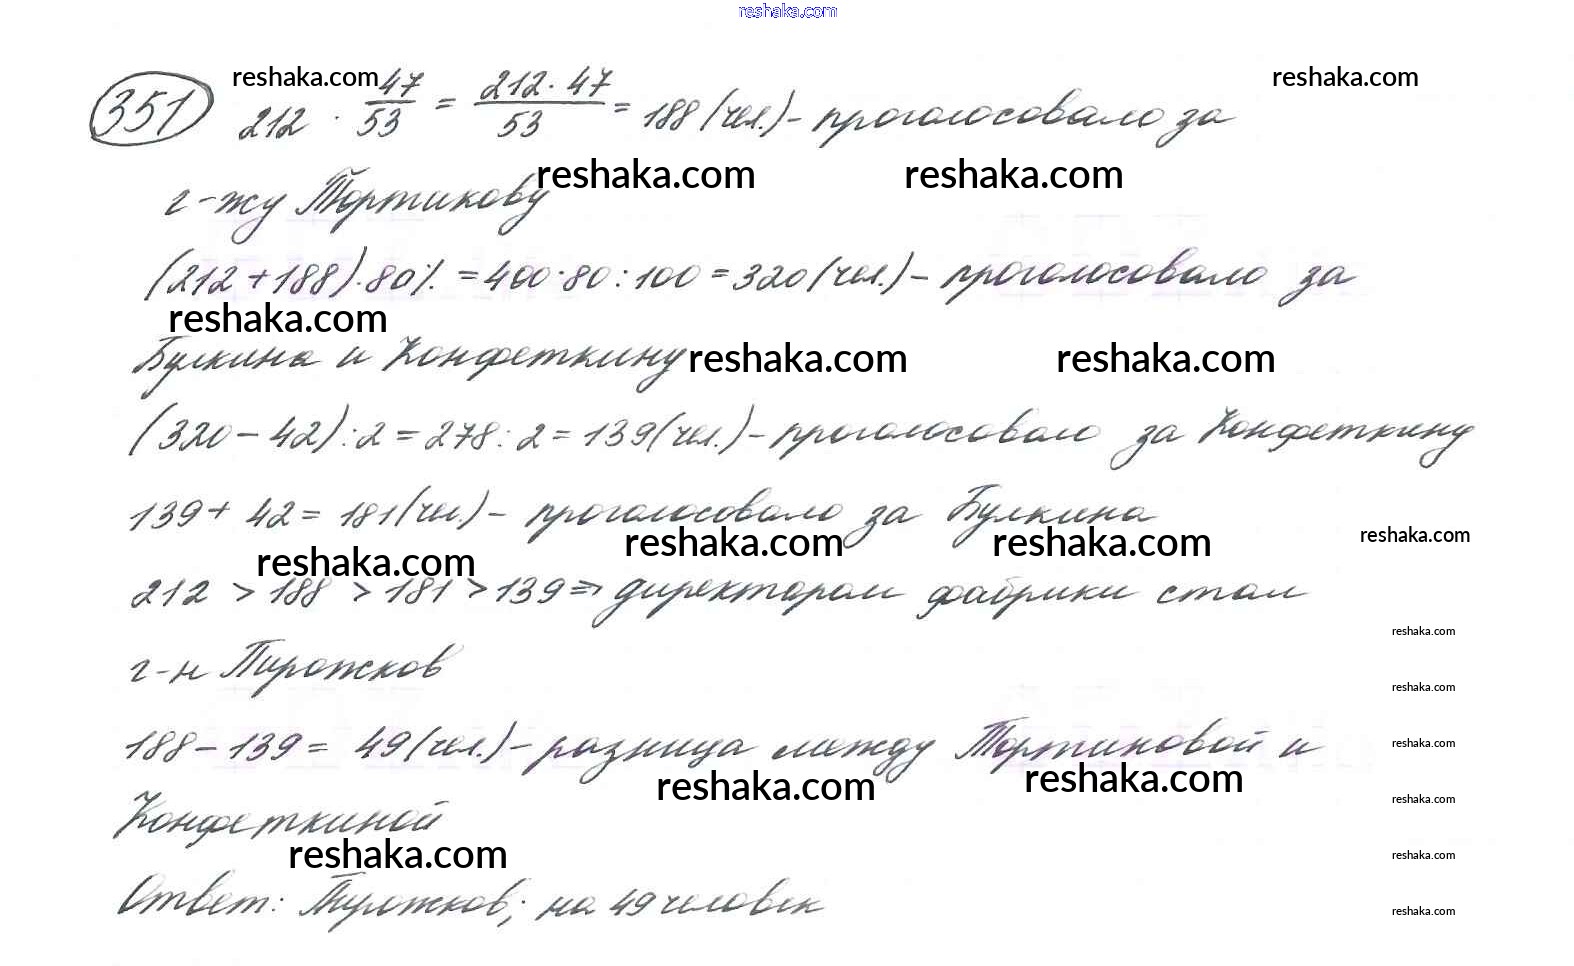 reshaka.com
351 212 · 47/53 = 212 · 47/53 = 188 (чел.) - проголосовало за
reshaka.com reshaka.com
г-жу Тортикову
reshaka.com reshaka.com
(212 + 188) · 80% = 400 · 80 : 100 = 320 (чел.) - проголосовало за
reshaka.com
Булкина и Конфеткину
reshaka.com reshaka.com
(320 - 42) : 2 = 278 : 2 = 139 (чел.) - проголосовало за Конфеткину
139 + 42 = 181 (чел.) - проголосовало за Булкина
reshaka.com reshaka.com reshaka.com reshaka.com
212 > 188 > 181 > 139 => директором фабрики стал
reshaka.com
г-н Пирожков
reshaka.com
188 - 139 = 49 (чел.) - разница между Тортиковой и
reshaka.com
reshaka.com reshaka.com
Конфеткиной
reshaka.com
reshaka.com reshaka.com
Ответ: Пирожков; на 49 человек
reshaka.com